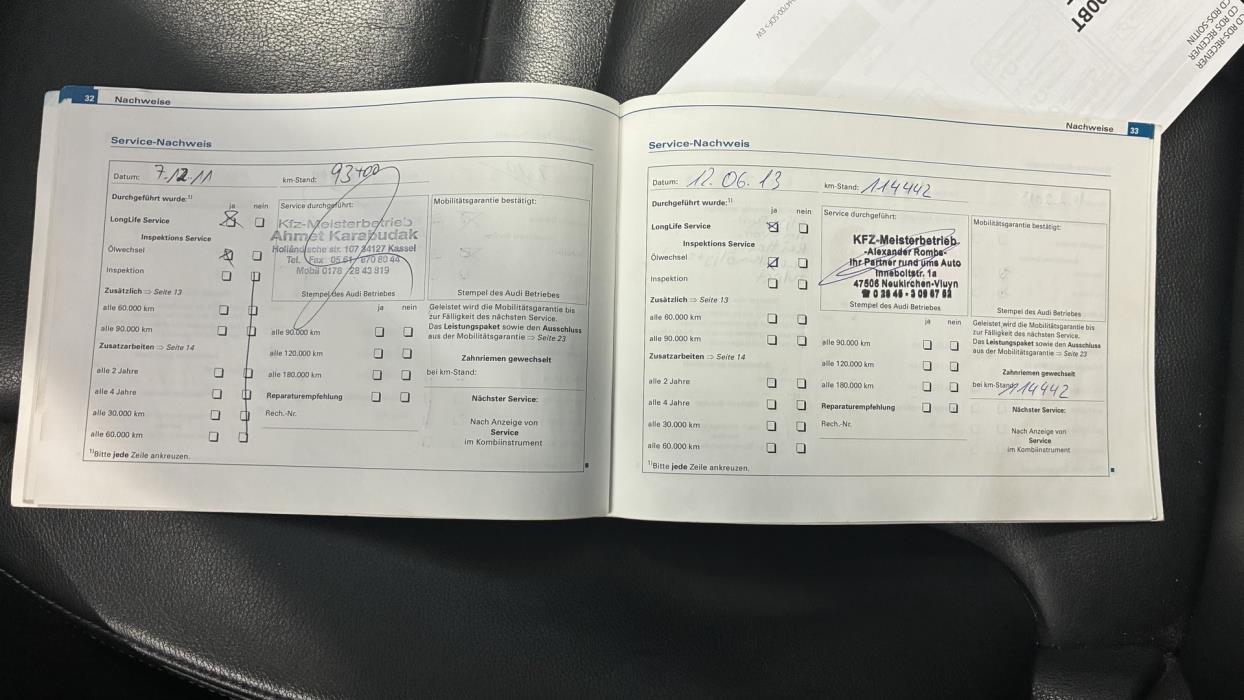 32 Nachweise
Service-Nachweis
Datum: 7.12.11 km-Stand: 93400
Durchgeführt wurde:¹⁾
ja nein
LongLife Service
Inspektions Service
Ölwechsel
Inspektion
Zusätzlich ⇒ Seite 13
alle 60.000 km
alle 90.000 km
Zusatzarbeiten ⇒ Seite 14
alle 2 Jahre
alle 4 Jahre
alle 30.000 km
alle 60.000 km
¹⁾Bitte jede Zeile ankreuzen.
Service durchgeführt:
Kfz-Meisterbetrieb
Ahmet Karabudak
Holländische str. 107 34127 Kassel
Tel. Fax 05 61 / 870 80 44
Mobil 0178 / 28 43 819
Stempel des Audi Betriebes
ja nein
alle 90.000 km
alle 120.000 km
alle 180.000 km
Reparaturempfehlung
Rech.-Nr.
Mobilitätsgarantie bestätigt:
Stempel des Audi Betriebes
Geleistet wird die Mobilitätsgarantie bis
zur Fälligkeit des nächsten Service.
Das Leistungspaket sowie den Ausschluss
aus der Mobilitätsgarantie ⇒ Seite 23
Zahnriemen gewechselt
bei km-Stand:
Nächster Service:
Nach Anzeige von
Service
im Kombiinstrument
Nachweise 33
Service-Nachweis
Datum: 12.06.13 km-Stand: 114442
Durchgeführt wurde:¹⁾
ja nein
LongLife Service
Inspektions Service
Ölwechsel
Inspektion
Zusätzlich ⇒ Seite 13
alle 60.000 km
alle 90.000 km
Zusatzarbeiten ⇒ Seite 14
alle 2 Jahre
alle 4 Jahre
alle 30.000 km
alle 60.000 km
¹⁾Bitte jede Zeile ankreuzen.
Service durchgeführt:
KFZ-Meisterbetrieb
-Alexander Rombs-
Ihr Partner rund ums Auto
Inneboltstr. 1a
47506 Neukirchen-Vluyn
Stempel des Audi Betriebes
ja nein
alle 90.000 km
alle 120.000 km
alle 180.000 km
Reparaturempfehlung
Rech.-Nr.
Mobilitätsgarantie bestätigt:
Stempel des Audi Betriebes
Geleistet wird die Mobilitätsgarantie bis
zur Fälligkeit des nächsten Service.
Das Leistungspaket sowie den Ausschluss
aus der Mobilitätsgarantie ⇒ Seite 23
Zahnriemen gewechselt
bei km-Stand: 114442
Nächster Service:
Nach Anzeige von
Service
im Kombiinstrument
CD RDS-RECEIVER
CD RDS RECEIVER